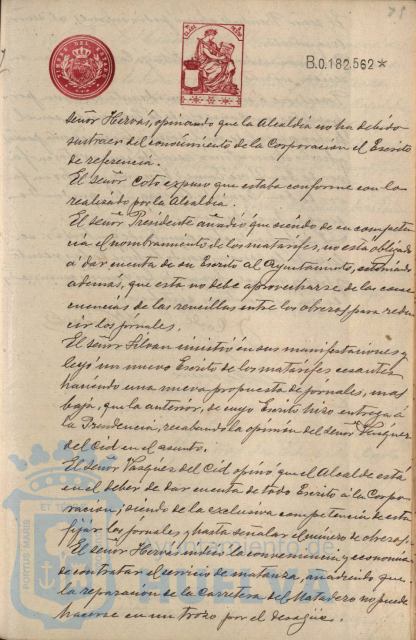 75
B.0.182.562*
señor Hervás, opinando que la Alcaldía no ha debido
sustraer del conocimiento de la Corporacion el Escrito
de referencia.
El señor Coto expuso que estaba conforme con lo
realizado por la Alcaldía.
El señor Presidente añadió que siendo de su competen
cia el nombramiento de los matarifes, no está obligado
á dar cuenta de su Escrito al Ayuntamiento, estimando
además, que esta no debe aprovecharse de las conse
cuencias de las rencillas entre los obreros para redu
cir los jornales.
El señor insistió en sus manifestaciones y
leyó un nuevo Escrito de los matarifes cesantes
haciendo una nueva propuesta de jornales, mas
baja, que la anterior, de cuyo Escrito hizo entrega á
la Presidencia, recabando la opinión del señor Vasquez
del Cid en el asunto.
El señor Vasquez del Cid opinó que el Alcalde está
en el deber de dar cuenta de todo Escrito á la Corpo-
racion; siendo de la exclusiva competencia de esta
fijar los jornales y hasta señalar el número de obreros.
El señor Hervás indicó la conveniencia y economia
de contratar el servicio de matanza, añadiendo que
la reparación de la Carretera del Matadero no puede
hacerse en un trozo por el desagüe.
PORTUS MARIS ET
Ayuntamiento de
HUELVA